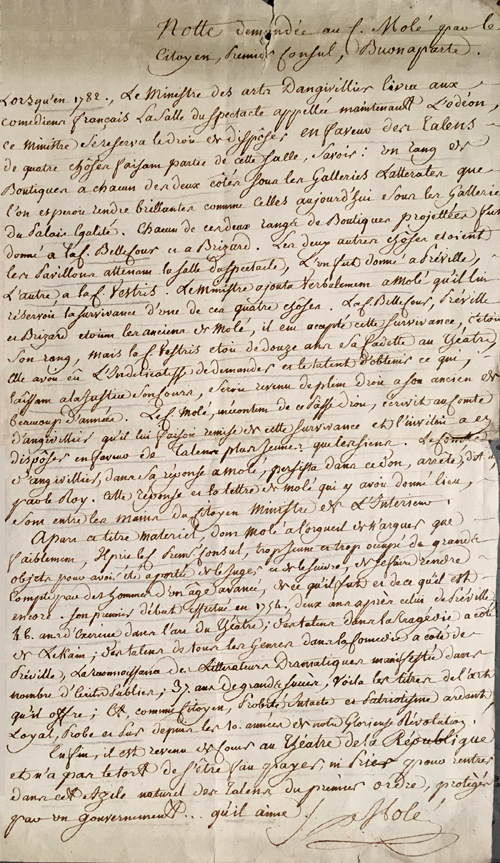 Notte demandée au C. Molé par le
Citoyen, Premier Consul, Buonaparte.
Lorsqu'en 1782., Le Ministre des arts Dangivillier livra aux
comediens français La Salle du Spectacle appellée maintenant L'odéon,
ce Ministre se reserva le droit de disposer en faveur des Talens
de quatre choses faisant partie de cette Salle, Savoir: un rang de
Boutiques a chacun des deux cotés sous les Galleries Latteralles que
l'on esperoit rendre brillantes comme celles aujourd'hui sous les Galleries
du Palais Egalité. Chacun de ces deux rangs de Boutiques projettées fut
donné a la f. Bellecour et a Brizard. Les deux autres choses etoient
les Pavillons attenant la Salle du Spectacle, L'un fut donné a Préville,
L'autre a la f. Vestris. Le Ministre ajouta Verbalement a Molé qu'il lui
réservoit la survivance d'une de ces quatre choses. La f. Bellecour, Préville
et Brizard etoient les anciens de Molé, il eut accepté cette survivance, c'etoit
Son rang, mais la f. Vestris etoit de douze ans sa Cadette au Théatre,
Elle avoit eû L'Indélicatesse de demander et le talent d'obtenir ce qui,
laissant a la justice son cours, seroit revenu de plein droit a son ancien de
beaucoup d'années. Le f. Molé, mécontent de ce Passe droit, écrivit au Comte
d'angivillier qu'il lui faisoit remise de cette survivance et l'invitoit a en
disposer en faveur de Talens plus jeunes que les siens. Le Comte
d'angivillier, dans sa réponse a Molé, persista dans ce don, arrêté, dit-il,
par le Roy. Cette réponse et la lettre de Molé qui y avoit donné lieu,
sont entre les mains du Citoyen Ministre de L'Interieur.
A part ce titre materiel, dont Molé a l'orgueil de n'arguer que
faiblement, il prie le Premier Consul, trop jeune et trop occupé de grands
objets pour avoir été a portée de le juger, de se faire rendre
compte par des hommes d'un age avancé, de ce qu'il fut et de ce qu'il est
encore. Son premier début effectué en 1754, deux ans après celui de Préville,
46. ans d'Exercice dans l'art du Théatre; des talens dans la tragédie a coté
de Lekain; des talens de tous les Genres dans la Comédie a coté de
Préville, La connoissance des Litteratures Dramatiques manifestée dans
nombre d'Ecrits Publics; 37. ans de grands succès, Voila les titres de l'artiste
qu'il offre; Et, comme Citoyen, Probité Intacte et Patriotisme ardent,
Loyal, Probe et Pur depuis les 10. années de notre Glorieuse Révolution.
Enfin, il est revenu de Cour au Théatre de la République
et n'a pas le tort de s'être fait payer, ni Prier pour rentrer
dans cet Azile naturel des talens du premier ordre, protégés
par un Gouvernement... qu'il aime.
Molé